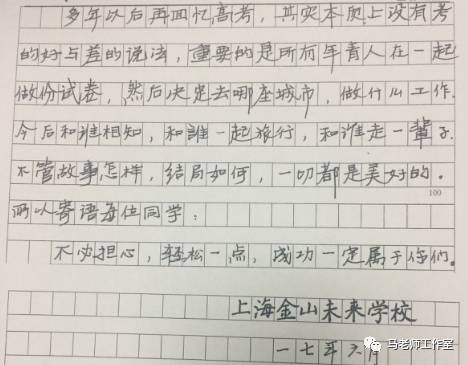 多年以后再回忆高考，其实本质上没有考
的好与差的说法，重要的是所有年青人在一起
做份试卷，然后决定去哪座城市，做什么工作.
今后和谁相知，和谁一起旅行，和谁走一辈子.
不管故事怎样，结局如何，一切都是美好的。
100
所以寄语每位同学：
不必担心，轻松一点，成功一定属于你们。
上海金山未来学校
一七年六月
马老师工作室